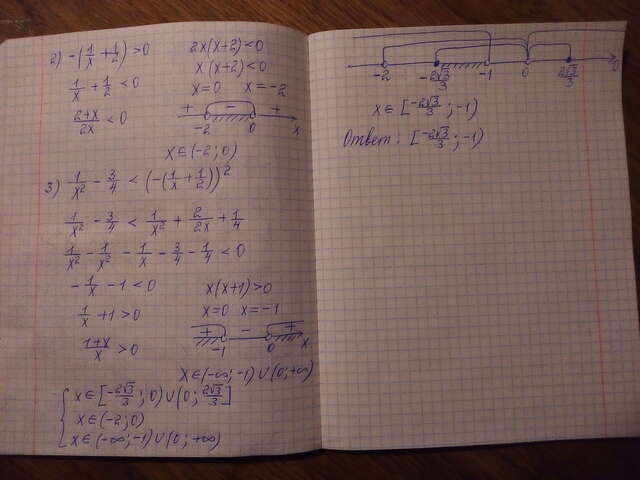 2) -(1/x + 1/2) > 0
1/x + 1/2 < 0
(2+x)/2x < 0
2x(x+2) < 0
x(x+2) < 0
x=0 x=-2
+ - +
-2 0 x
x∈(-2;0)
3) 1/x² - 3/4 < (-(1/x + 1/2))²
1/x² - 3/4 < 1/x² + 2/2x + 1/4
1/x² - 1/x² - 1/x - 3/4 - 1/4 < 0
-1/x - 1 < 0
1/x + 1 > 0
(1+x)/x > 0
x(x+1) > 0
x=0 x=-1
+ - +
-1 0 x
x∈(-∞;-1)∪(0;+∞)
{ x∈[-2√3/3;0)∪(0;2√3/3]
x∈(-2;0)
x∈(-∞;-1)∪(0;+∞)
-2 -2√3/3 -1 0 2√3/3
x∈[-2√3/3;-1)
Ответ: [-2√3/3;-1)